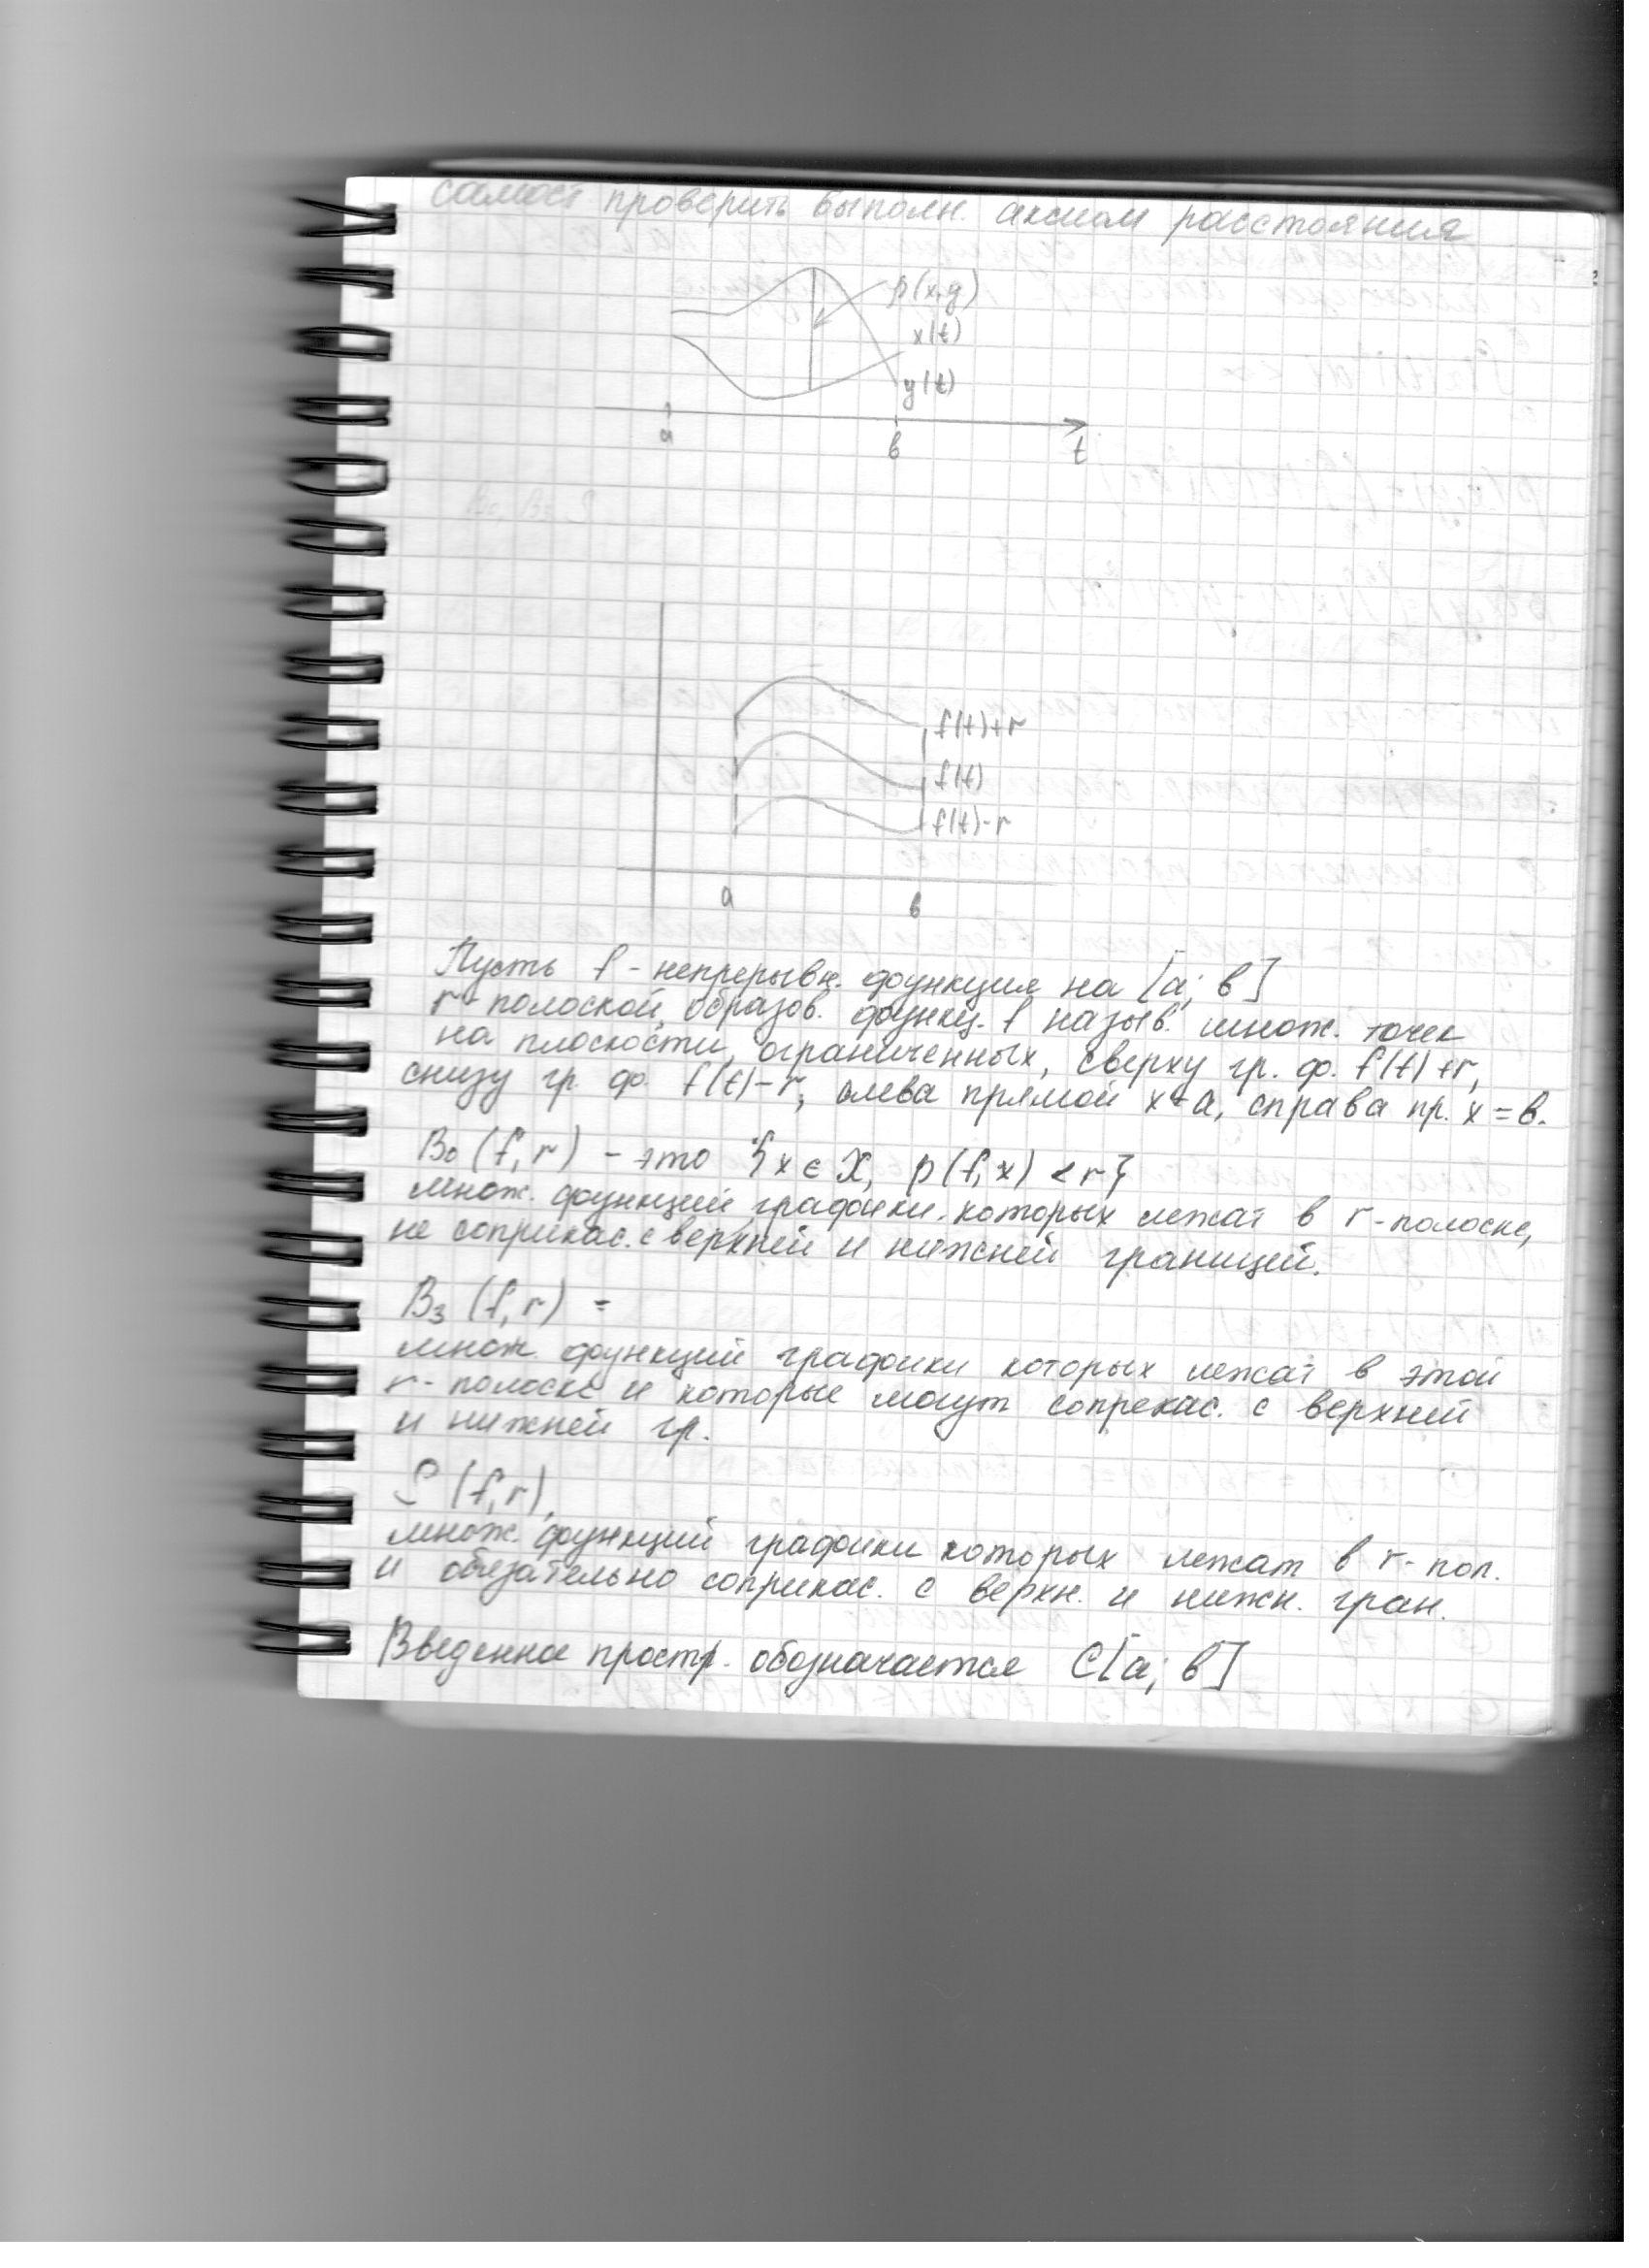 самост проверить выполн. аксиом расстояния
ρ(x,y)
x(t)
y(t)
a
в
t
В₀, В₃, S
f(t)+r
f(t)
f(t)-r
a
в
Пусть f - непрерывн. функция на [a; в]
r-полоской, образов. функц. f назыв. множ. точек
на плоскости, ограниченных, сверху гр. ф. f(t)+r,
снизу гр. ф. f(t)-r, слева прямой x=a, справа пр. x=в.
В₀ (f, r) - это {x∈X, ρ(f,x) < r}
множ. функций графики которых лежат в r-полоске,
не соприкас. с верхней и нижней границей.
В₃ (f, r) =
множ. функций графики которых лежат в этой
r-полоске и которые могут сопрекас. с верхней
и нижней гр.
S (f, r),
множ. функций графики которых лежат в r-пол.
и обязательно соприкас. с верхн. и нижн. гран.
Введенное простр. обозначается C[a; в]